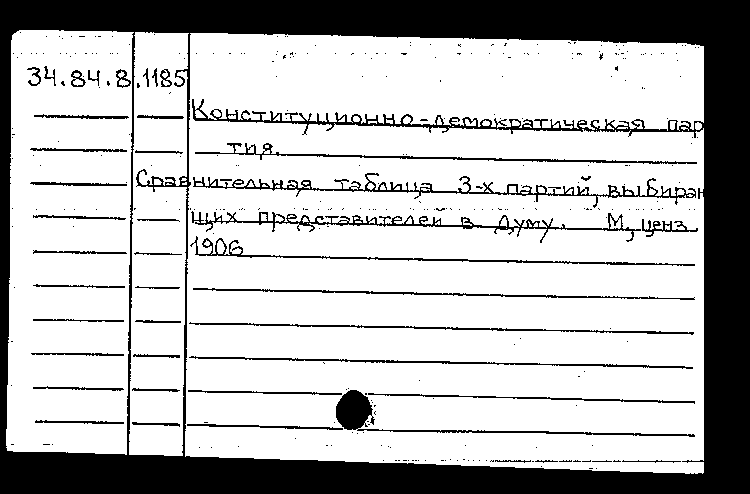 34.84.8.1185
Конституционно-демократическая пар
тия.
Сравнительная таблица 3-х партий, выбираю
щих представителей в Думу. М, ценз.
1906